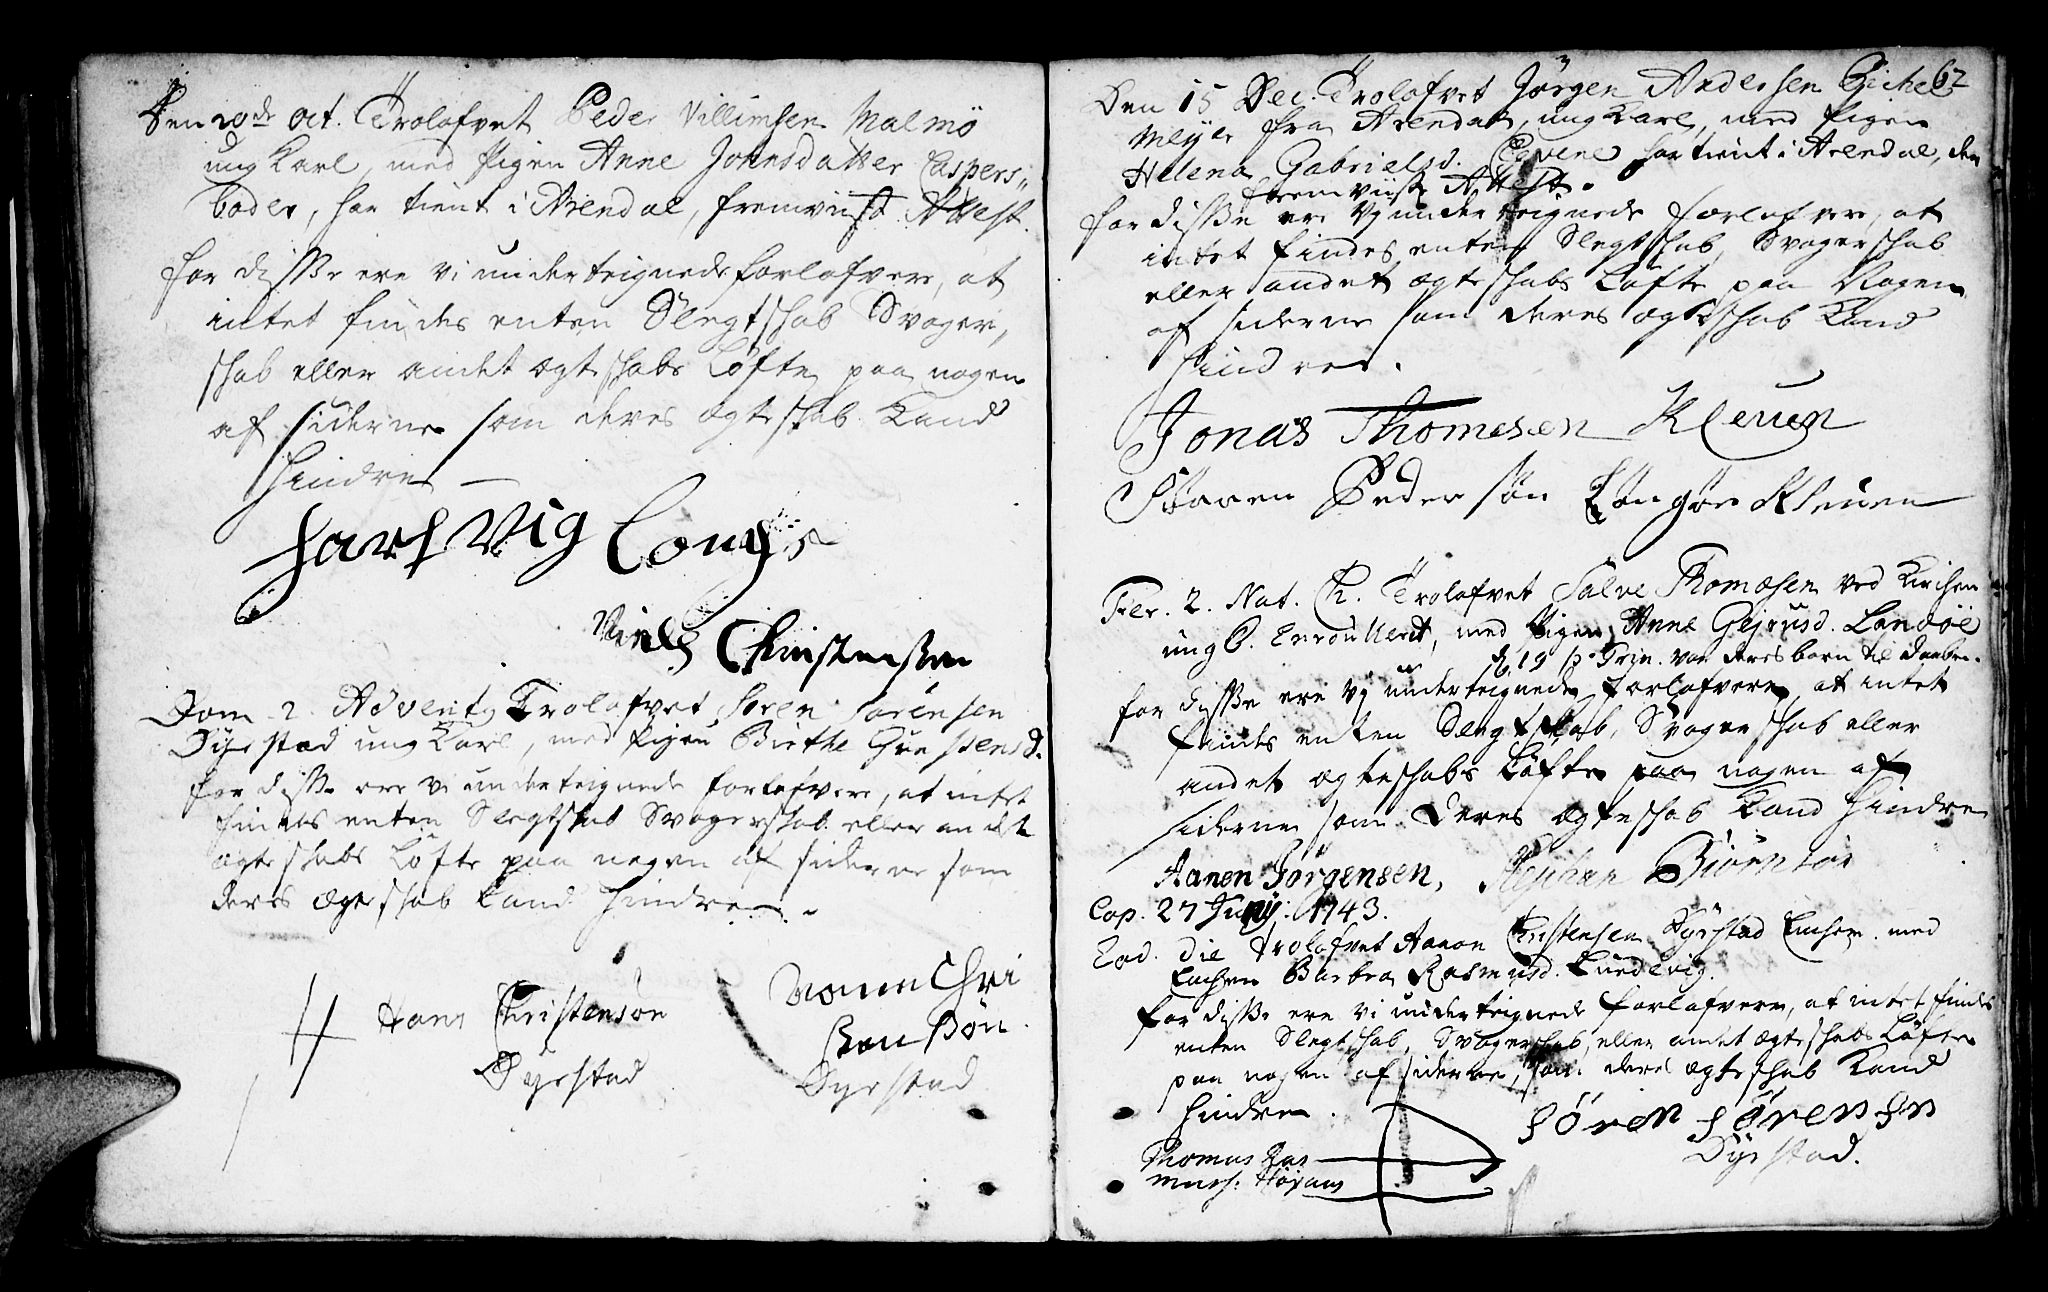 Den 20de Oct. Trolofvet Peder Villimsen Malmö
ung Karl, med Pigen Anne Johnsdatter Caspers„
boder, har tient i Arendal, fremviist Attest.
for disse ere vi underteignede forlofvere, at
intet findes enten Slegtskab Svoger,
skab eller andet ægteskabs Løfte paa nogen
af siderne som deres ægteskab Kand
hindre —
HartVig
Niels Christensen
Dom 2. Advent, Trolofvet Søren Sørensen
Dyrstad ung Karl, med Pigen Birthe
for disse ere vi underteignede forlofvere, at intet
findes enten Slegtskab Svogerskab eller andet
ægteskabs Løfte paa nogen af siderne som
deres ægteskab Kand hindre.
Hans Christensøn
Dyrstad
Aanon Chri
sten Søn
Dyrstad
62
Den 15 Dec. Trolofvet Jørgen Andersen
Meyer fra Arendal, ung Karl, med Pigen
Helena Gabrielsd. har tient i Arendal, den
fremviiste Attest.
for disse ere Vj underteignede forlofvere, at
intet findes enten Slegtskab, Svogerskab
eller andet ægteskabs Løfte paa Nogen
af siderne som deres ægteskab Kand
hindre.
Jonas Thomesen Kleven
Søren Peder søn Kleven
Fer. 2. Nat. Ch. Trolofvet Salve Thomæsen ved Kirchen
ung C. Enroulleret, med Pigen Anne Gejrusd. Landöe
D. 19 p. Trin. var deres barn til Daaben.
for disse ere Vj underteignede forlofvere, at intet
findes enten Slegtskab, Svogerskab eller
andet ægteskabs Løfte paa nogen af
siderne som deres ægteskab Kand hindre
Aanen Jørgensen, Stephan
Cop. 27 Junij. 1743.
Eod. die Trolofvet Aanon Christensen Dyrstad Enchem. med
Enchen Barbra Rasmusd. Lundevig.
for disse ere vi underteignede forlofvere, at intet findes
enten Slegtskab, Svogerskab, eller andet ægteskabs Løfte
paa nogen af siderne, som deres ægteskab Kand
hindre.
Thomas Ras
mus.
Søren Sørensen
Dyrstad.